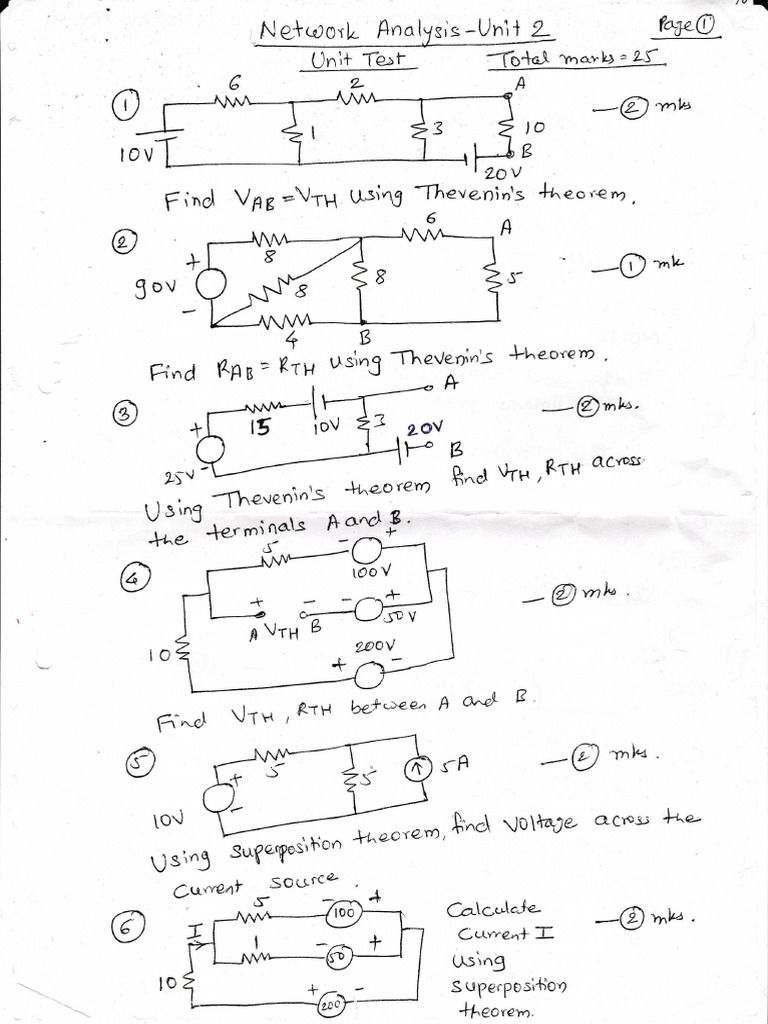 Network Analysis-Unit 2
Page ①
Unit Test
Total marks = 25
① 6 2 A
1 3 10 — ② mks
10V B
20V
Find VAB = VTH using Thevenin's theorem.
② 6 A
+ 8
90V 8 8 5 — ① mk
-
4 B
Find RAB = RTH using Thevenin's theorem.
③ A
+ 15 10V 3 20V — ② mks.
25V - B
Using Thevenin's theorem find VTH, RTH across
the terminals A and B.
④ 5 - +
100V
+ - - + — ② mks.
A VTH B 50V
10 200V
+ -
Find VTH, RTH between A and B.
⑤ 5
+ 5 5A — ② mks.
-
10V
Using superposition theorem, find voltage across the
current source.
⑥ 5 - 100 + Calculate — ② mks.
I 1 - 50 + current I
10 using
+ 200 - superposition
theorem.